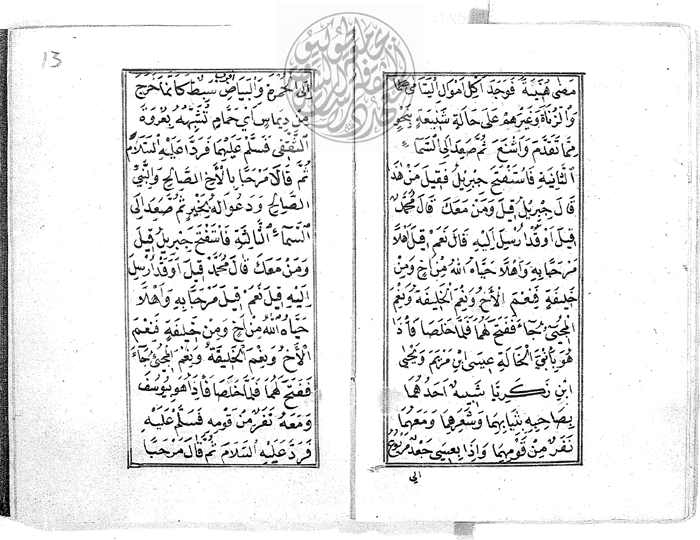 مضى هنيئة فوجد اكل اموال اليتامى
والزناة وغيرهم على حالة شنيعة بنحو
مما تقدم واشنع ثم صعد الى السماء
الثانية فاستفتح جبريل فقيل من هذا
قال جبريل قيل ومن معك قال محمد
قيل اوقد ارسل اليه قال نعم قيل اهلا
مرحبا به واهلا حياه الله من اخ ومن
خليفة فنعم الاخ ونعم الخليفة ونعم
المجئ جاء ففتح لهما فلما خلصا فاذا
هو بابني الخالة عيسى ابن مريم ويحيى
ابن زكريا شبيه احدهما
بصاحبه بثيابهما وشعرهما ومعهما
نفر من قومهما واذا بعيسى جعد مربوع
الى
13
الى الحمرة والبياض سبط كانما خرج
من ديماس اي حمام تشبهه بعروة
الثقفي فسلم عليهما فردا عليه السلام
ثم قالا مرحبا بالاخ الصالح والنبي
الصالح ودعوا له بخير ثم صعد الى
السماء الثالثة فاستفتح جبريل قيل
ومن معك قال محمد قيل اوقد ارسل
اليه قيل نعم قيل مرحبا به واهلا
حياه الله من اخ ومن خليفة فنعم
الاخ ونعم الخليفة ونعم المجئ جاء
ففتح لهما فلما خلصا فاذا هو بيوسف
ومعه نفر من قومه فسلم عليه
فرد عليه السلام ثم قال مرحبا